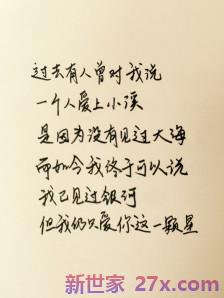 过去有人曾对我说
一个人爱上小溪
是因为没有见过大海
而如今我终于可以说
我已见过银河
但我仍只爱你这一颗星
新世家 27x.com